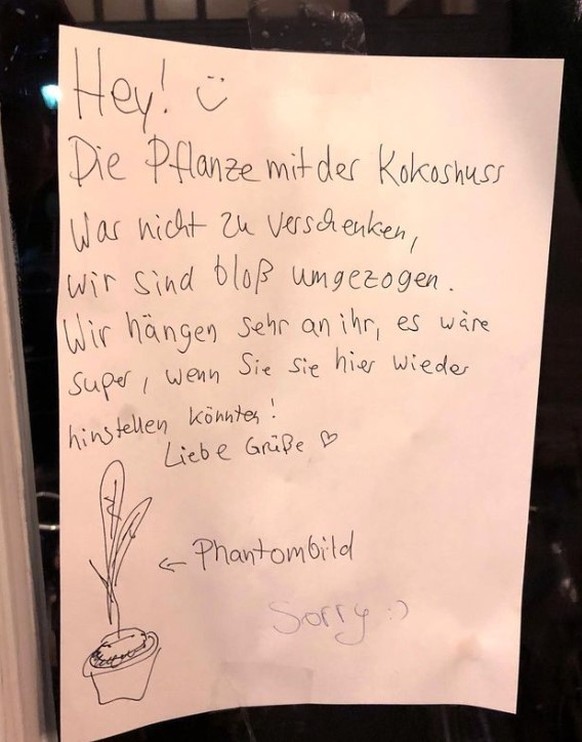 Hey! :)
Die Pflanze mit der Kokosnuss
war nicht zu verschenken,
wir sind bloß umgezogen.
Wir hängen sehr an ihr, es wäre
super, wenn Sie sie hier wieder
hinstellen könnten!
Liebe Grüße ♡
← Phantombild
Sorry :)